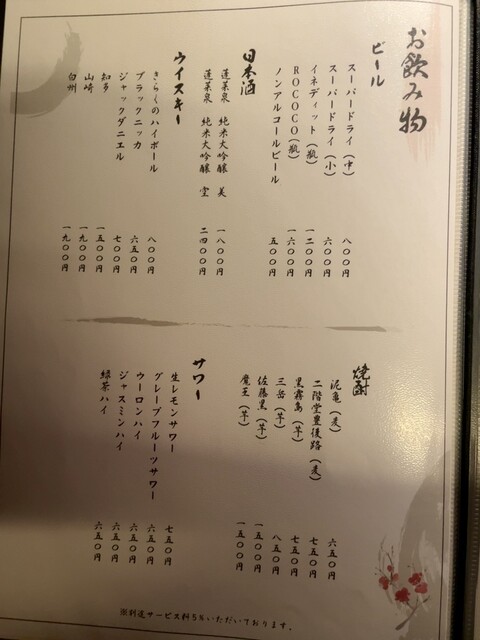 お飲み物
ビール
スーパードライ（中） 八〇〇円
スーパードライ（小） 六〇〇円
イネディット（瓶） 一二〇〇円
ROCOCO（瓶） 一六〇〇円
ノンアルコールビール 五〇〇円
日本酒
蓬莱泉 純米大吟醸 美 一八〇〇円
蓬莱泉 純米大吟醸 空 二四〇〇円
ウイスキー
きらくのハイボール 八〇〇円
ブラックニッカ 六五〇円
ジャックダニエル 七〇〇円
知多 一五〇〇円
山崎 一九〇〇円
白州 一九〇〇円
焼酎
泥亀（麦） 六五〇円
二階堂豊後路（麦） 七五〇円
黒霧島（芋） 七五〇円
三岳（芋） 八五〇円
佐藤黒（芋） 一五〇〇円
魔王（芋） 一五〇〇円
サワー
生レモンサワー 七五〇円
グレープフルーツサワー 六五〇円
ウーロンハイ 六五〇円
ジャスミンハイ 六五〇円
緑茶ハイ 六五〇円
※別途サービス料5%いただいております。